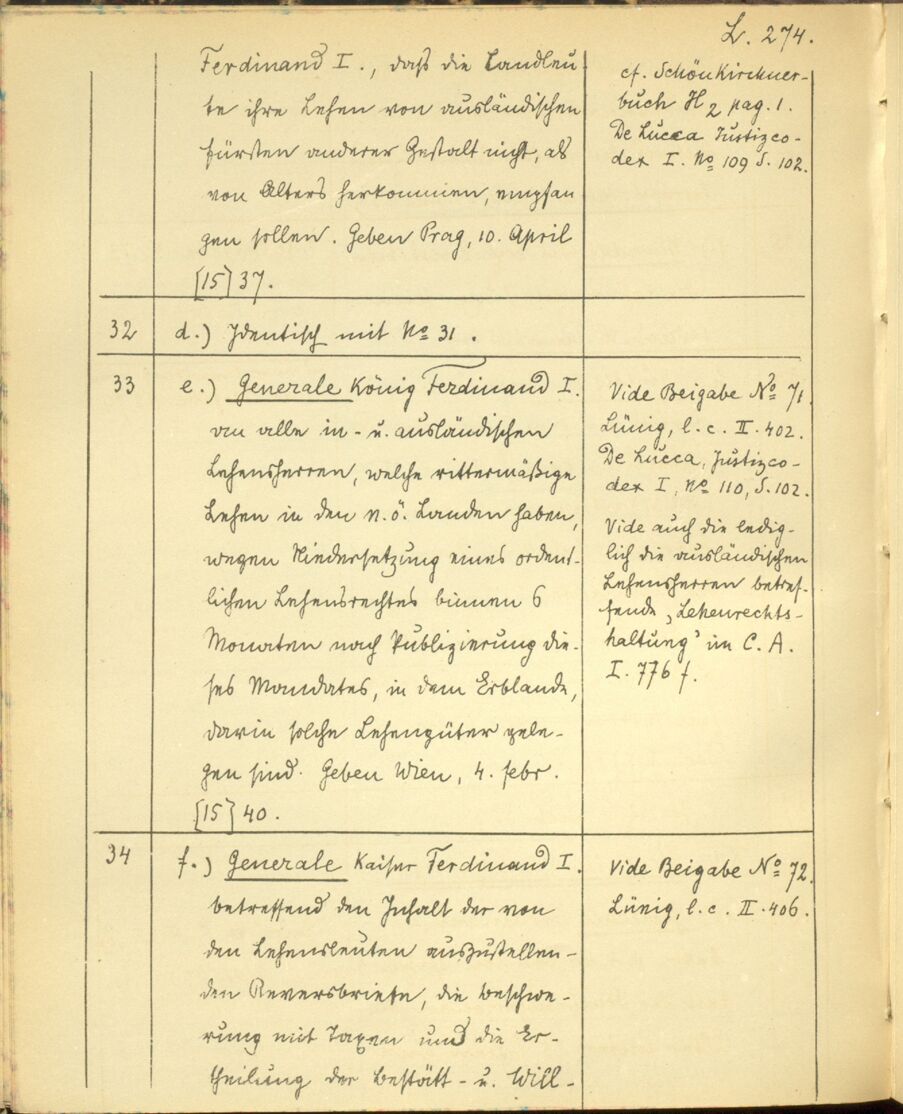 L. 274.
Ferdinand I., daß die Landleu
te ihre Lehen von ausländischen
Fürsten anderer Gestalt nicht, als
von Alters herkommen, empfan
gen sollen. Geben Prag, 10. April
[15]37.
cf. Schönkirchner-
buch H 2 pag. 1.
De Lucca Justizco-
dex I. No 109 S. 102.
32
d.) Identisch mit No 31.
33
e.) Generale König Ferdinand I.
an alle in- u. ausländischen
Lehensherren, welche rittermäßige
Lehen in den n. ö. Landen haben,
wegen Niedersetzung eines ordent-
lichen Lehensrechtes binnen 6
Monaten nach Publizierung die-
ses Mandates, in dem Erblande,
darin solche Lehengüter gele-
gen sind. Geben Wien, 4. Febr.
[15]40.
Vide Beigabe No 71.
Lünig, l. c. II. 402.
De Lucca, Justizco-
dex I, No 110, S. 102.
Vide auch die ledig-
lich die ausländischen
Lehensherren betref-
fende „Lehenrechts-
haltung" im C. A.
I. 776 f.
34
f.) Generale Kaiser Ferdinand I.
betreffend den Inhalt der von
den Lehensleuten auszustellen-
den Reversbriefe, die Beschwe-
rung mit Taxen und die Er-
theilung der Bestätt- u. Will-
Vide Beigabe No 72.
Lünig, l. c. II. 406.